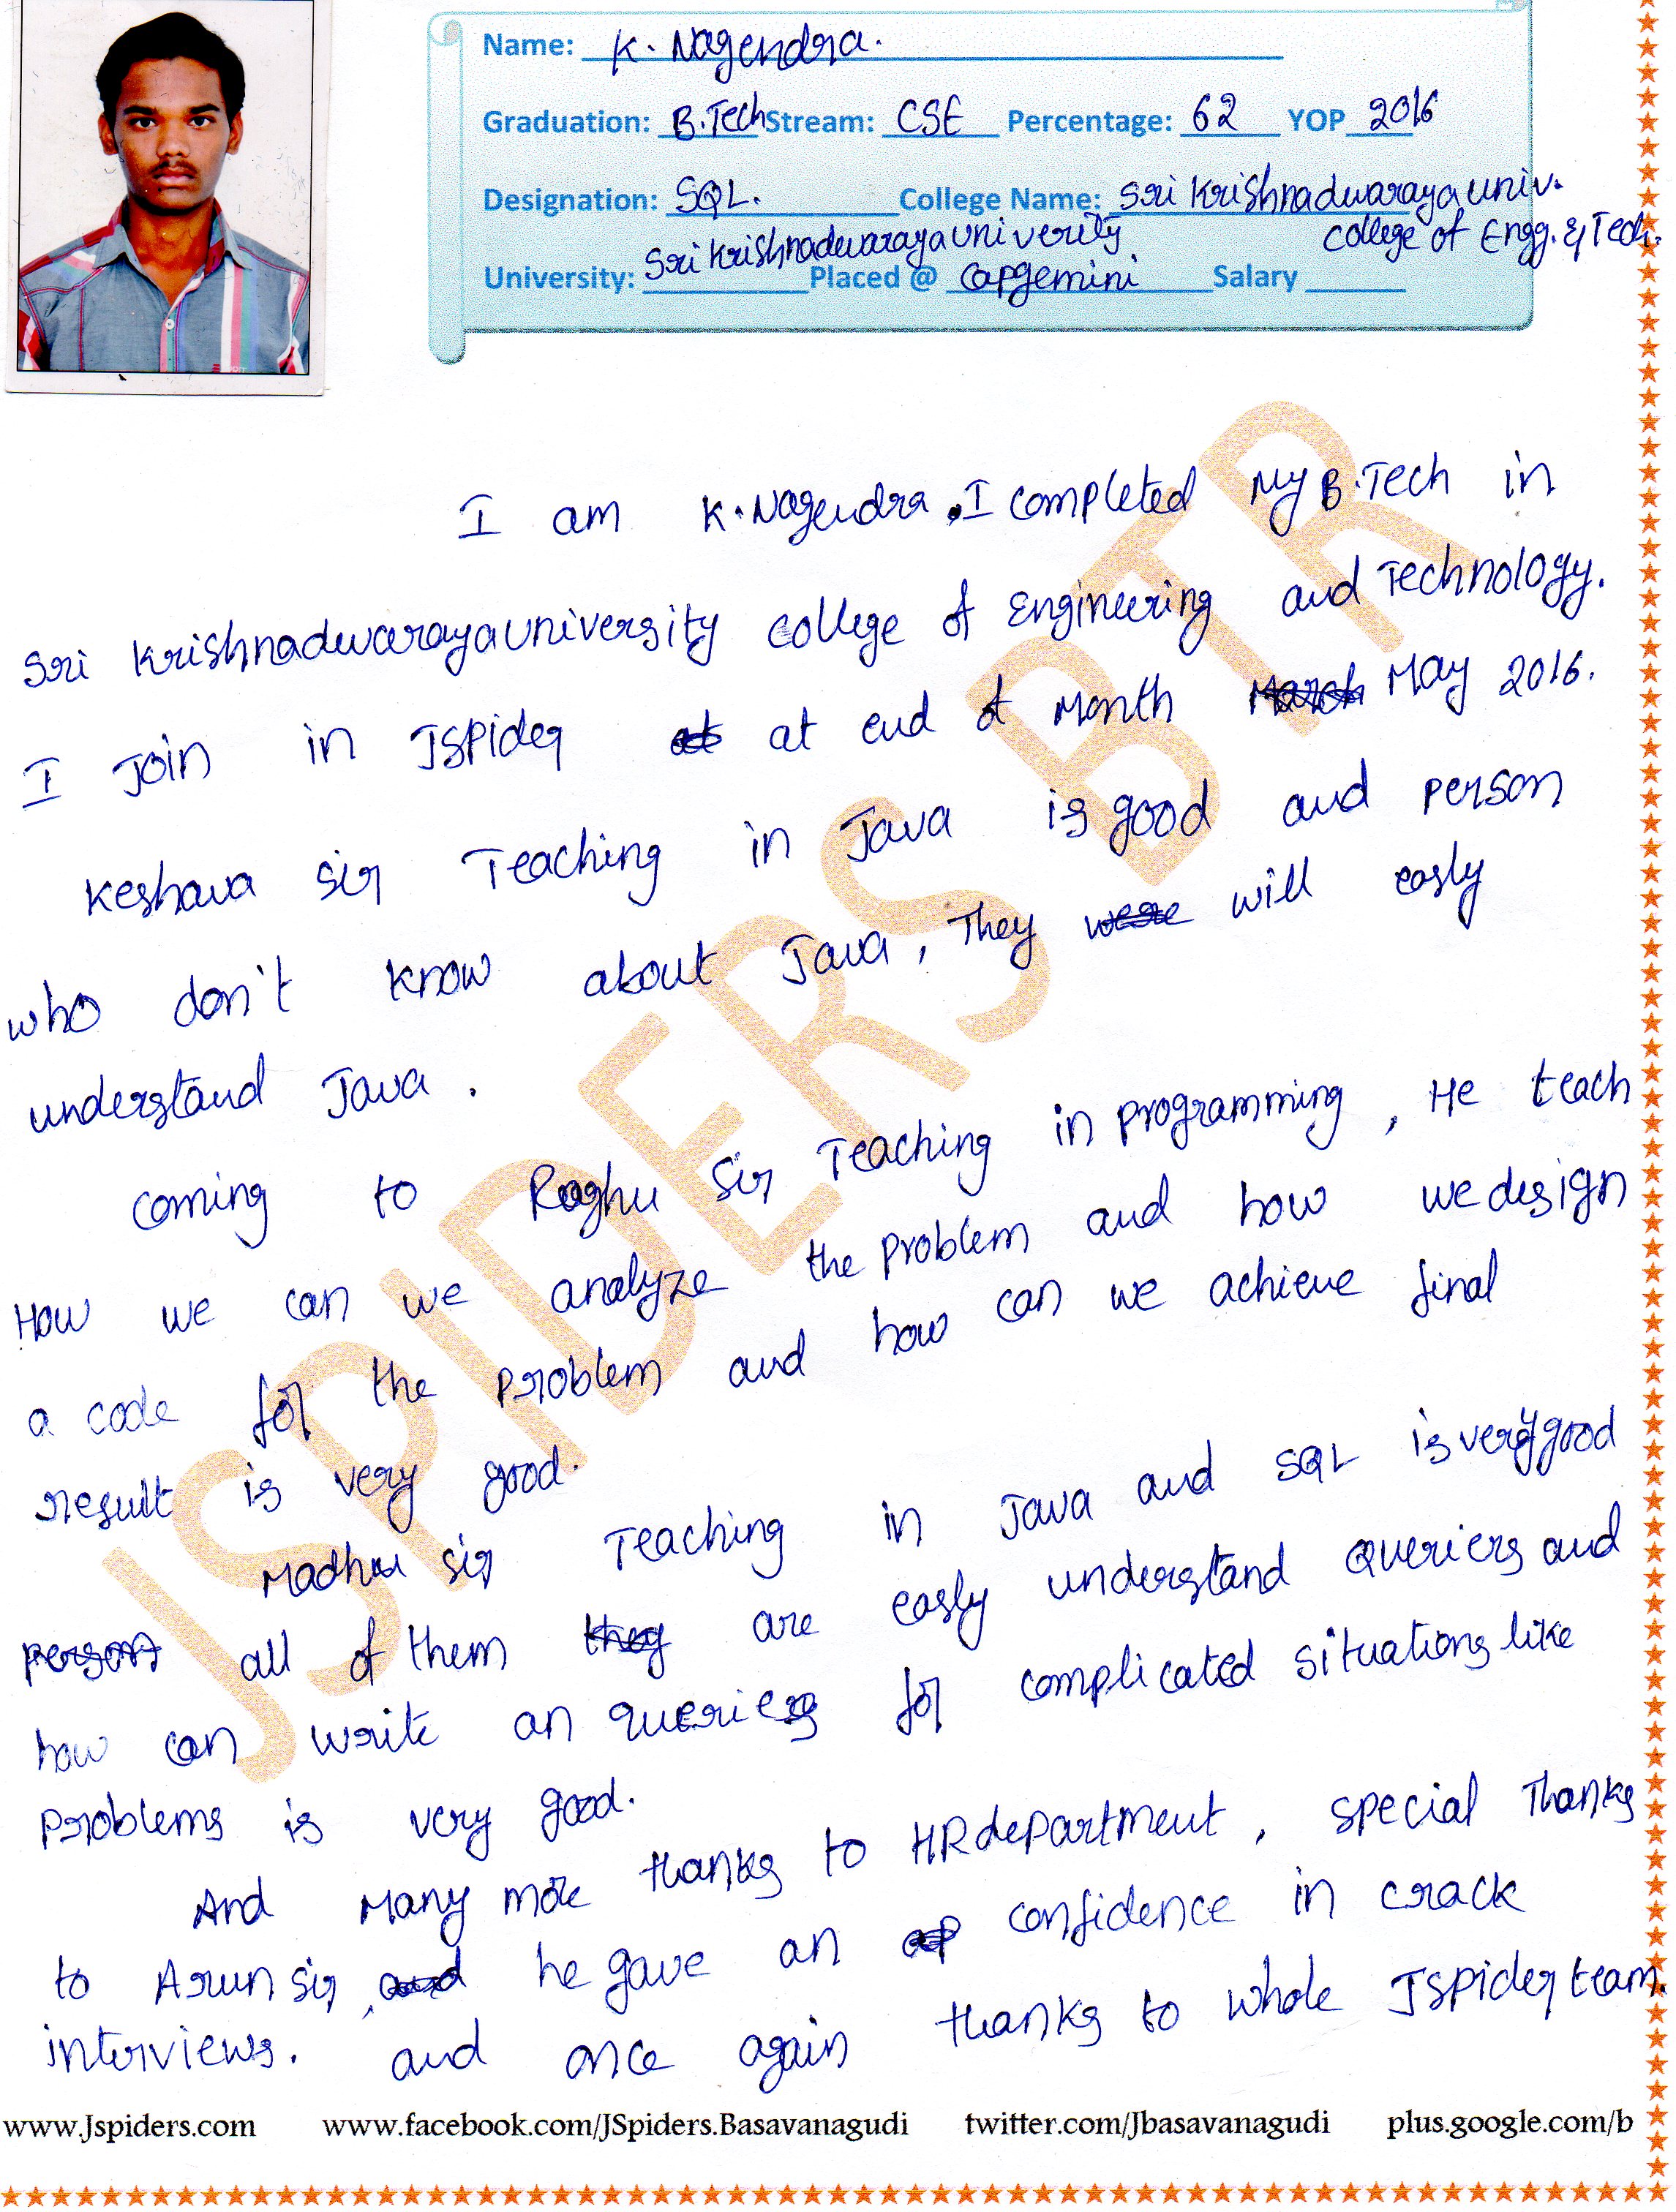 Name: K. Nagendra.
Graduation: B.Tech Stream: CSE Percentage: 62 YOP 2016
Designation: SQL. College Name: Sri Krishnadwaraya univ.
college of Engg. & Tech.
University: Sri Krishnadwaraya univerity Placed @ Capgemini Salary
I am K. Nagendra. I completed My B.Tech in
Sri Krishnadwaraya university college of Engineering and Technology.
I Join in Jspider at at end of Month March May 2016.
Keshava sir Teaching in Java is good and person
who don't know about Java, They were will easly
understand Java.
coming to Raghu sir Teaching in programming, He teach
How we can we analyze the problem and how we design
a code for the problem and how can we achieve final
result is very good.
Madhu sir Teaching in Java and SQL is very good
person all of them they are easly understand queriers and
how can write an queriers for complicated situations like
problems is very good.
And Many more thanks to HR department, special Thanks
to Arun sir, and he gave an confidence in crack
interviews. and once again thanks to whole Jspider team.
JSPIDERS BTR
www.Jspiders.com www.facebook.com/JSpiders.Basavanagudi twitter.com/Jbasavanagudi plus.google.com/b